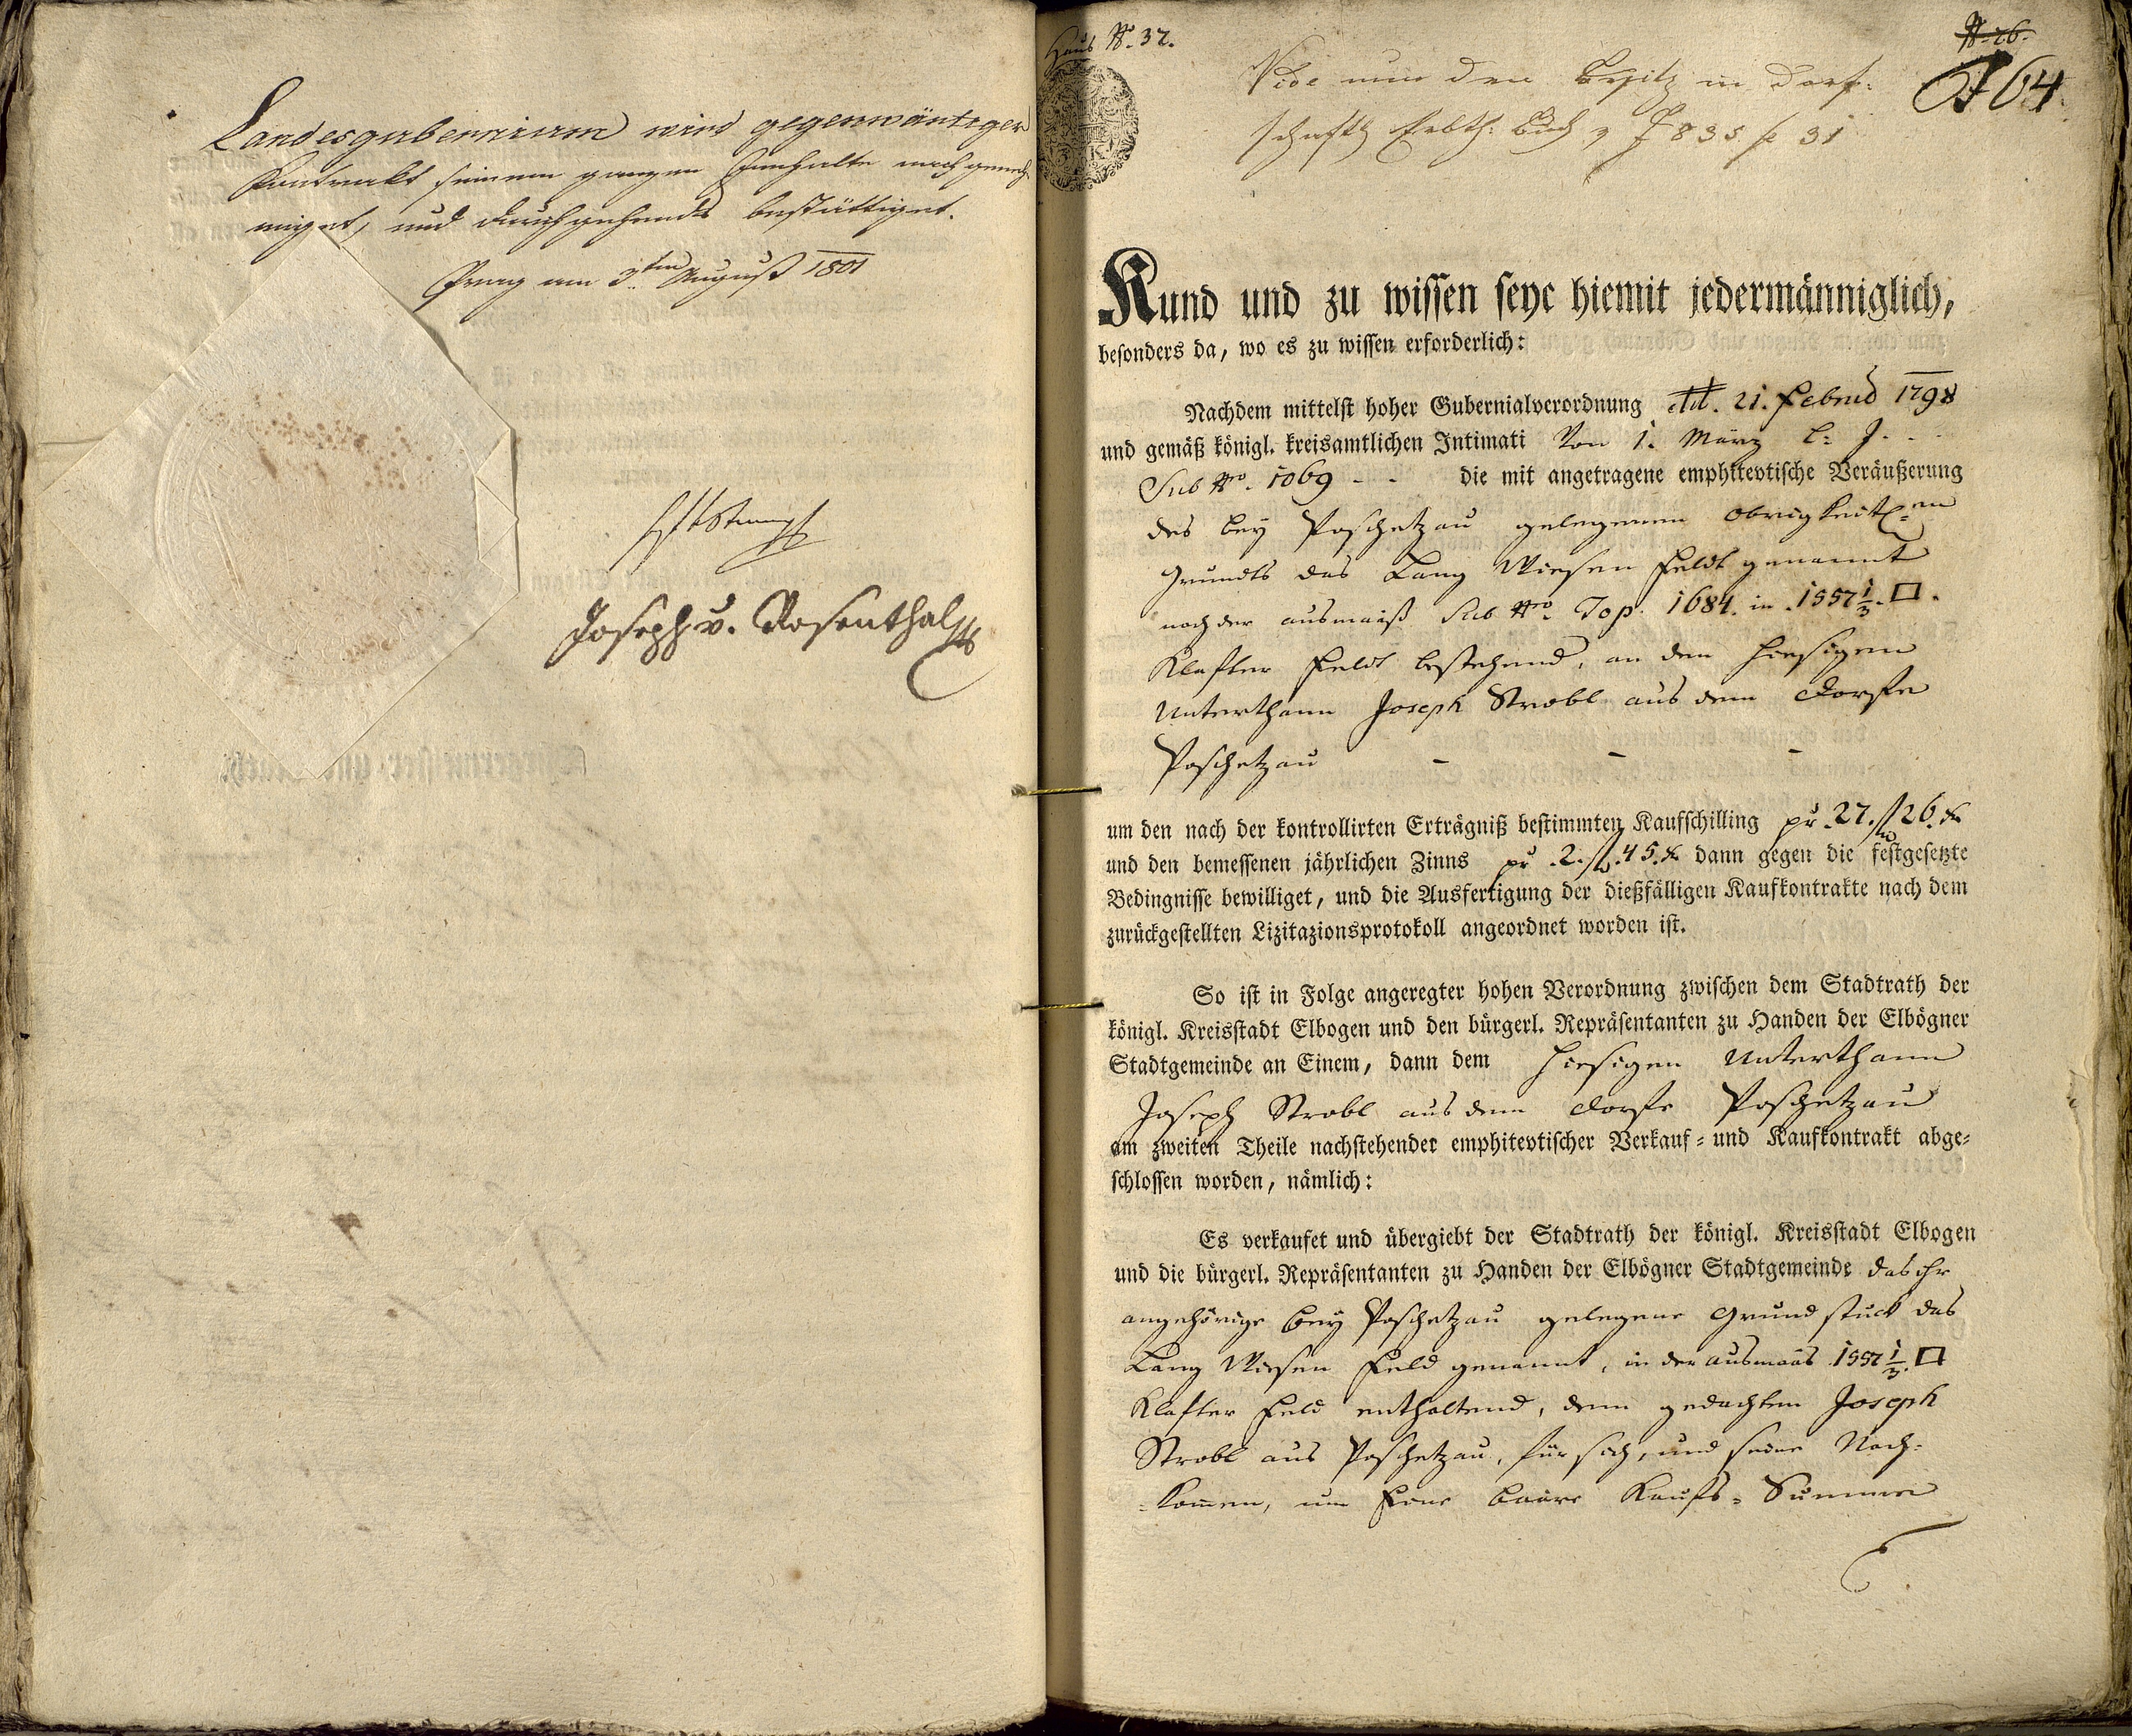 Landesgubernium wird gegenwärtiger
Kontrakt seinem ganzen Innhalte nach geneh-
miget, und durchgehends bestättiget.
Prag am 3ten August 1801
Joseph v. Rosenthal
Haus No. 37.
No. 26.
64
Vide nun den Besitz in Dorf-
schafts Buch 31
Kund und zu wissen seye hiemit jedermänniglich,
besonders da, wo es zu wissen erforderlich:
Nachdem mittelst hoher Gubernialverordnung ddt. 21. Febru 1798
und gemäß königl. kreisamtlichen Intimati Von 1. März l: J.
Sub Nro. 1069 - - die mit angetragene emphitevtische Veräußerung
des bey Poschetzau gelegenen obrigkeitl:en
Grundts das Lang Wiesen Feldt genannt
nach der ausmaß Sub Nro Top. 1684. in 1557 1/3 □.
Klafter Feldt bestehend, an den hiesigen
Unterthann Joseph Strobl aus dem Dorfe
Poschetzau - - -
um den nach der kontrollirten Erträgniß bestimmten Kaufschilling pr. 27. fl 26. xr
und den bemessenen jährlichen Zinns pr. 2. fl. 45. xr dann gegen die festgesetzte
Bedingnisse bewilliget, und die Ausfertigung der dießfälligen Kaufkontrakte nach dem
zurückgestellten Lizitazionsprotokoll angeordnet worden ist.
So ist in Folge angeregter hohen Verordnung zwischen dem Stadtrath der
königl. Kreisstadt Elbogen und den bürgerl. Repräsentanten zu Handen der Elbögner
Stadtgemeinde an Einem, dann dem hiesigen Unterthann
Joseph Strobl aus dem Dorfe Poschetzau
am zweiten Theile nachstehender emphitevtischer Verkauf- und Kaufkontrakt abge-
schlossen worden, nämlich:
Es verkaufet und übergiebt der Stadtrath der königl. Kreisstadt Elbogen
und die bürgerl. Repräsentanten zu Handen der Elbögner Stadtgemeinde das ihr
angehörige bey Poschetzau gelegene Grundstuck das
Lang Wiesen Feld genannt, in der ausmaas 1557 1/3 □
Klafter Feld enthaltend, dem gedachten Joseph
Strobl aus Poschetzau, für sich, und seine Nach-
kommen, um Eine baare Kaufs-Summe